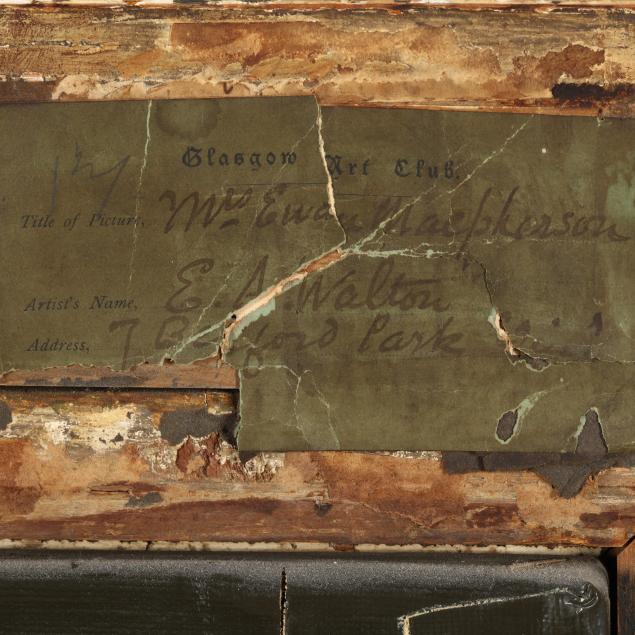 127
Glasgow Art Club.
Title of Picture, Mrs Ewan Macpherson
Artist's Name, E. A. Walton
Address, 7 Bedford Park